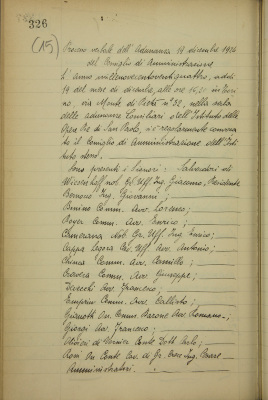 326
(15)
Processo verbale dell'adunanza 19 dicembre 1924
del Consiglio di Amministrazione
L'anno millenovecentoventiquattro, addì
19 del mese di dicembre, alle ore 16, in Torino
, via Monte di Pietà n° 32, nella sala
delle adunanze Consiliari dell'Istituto delle
Opere Pie di San Paolo, si è regolarmente convocato
il Consiglio di Amministrazione dell'Istituto
stesso.
Sono presenti i Signori: Salvadori di
Wiesenhoff nob. Gr. Uff. Ing. Giacomo, Presidente
Ing. Giovanni;
Comm. Avv. Lorenzo;
Comm. Avv. Enrico;
Nob. Gr. Uff. Ing. Enrico;
Cappa Legora Gr. Uff. Avv. Antonio;
Comm. Avv. Camillo;
Comm. Avv. Giuseppe;
Avv. Francesco;
Comm. Avv. Calisto;
On. Comm. Barone Avv. Romano;
Giorgi Avv. Francesco;
di Conte Dott. Carlo;
On. Conte Cav. di Gr. Croce Ing. Cesare
Amministratori.